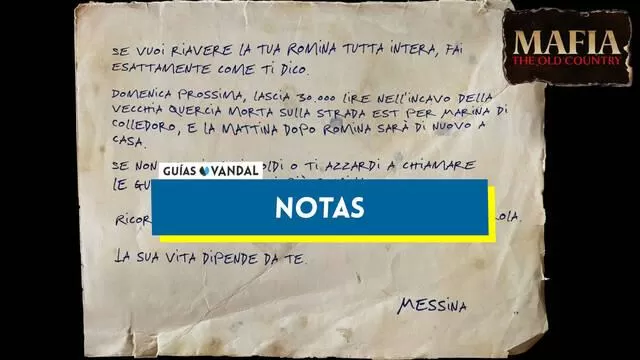 MAFIA
THE OLD COUNTRY
SE VUOI RIAVERE LA TUA ROMINA TUTTA INTERA, FAI
ESATTAMENTE COME TI DICO.
DOMENICA PROSSIMA, LASCIA 30.000 LIRE NELL'INCAVO DELLA
VECCHIA QUERCIA MORTA SULLA STRADA EST PER MARINA DI
COLLEDORO, E LA MATTINA DOPO ROMINA SARÀ DI NUOVO A
CASA.
SE NON OLDI O TI AZZARDI A CHIAMARE
LE
GUÍAS VANDAL
NOTAS
LA SUA VITA DIPENDE DA TE.
MESSINA